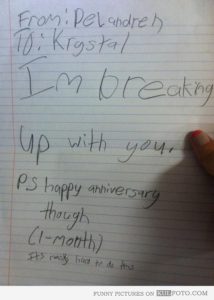 From: DeLandreh
To: Krystal
Im breaking
Up with you.
PS happy anniversary
though
(1-month)
Its really hard to do this
FUNNY PICTURES ON FOTO.COM